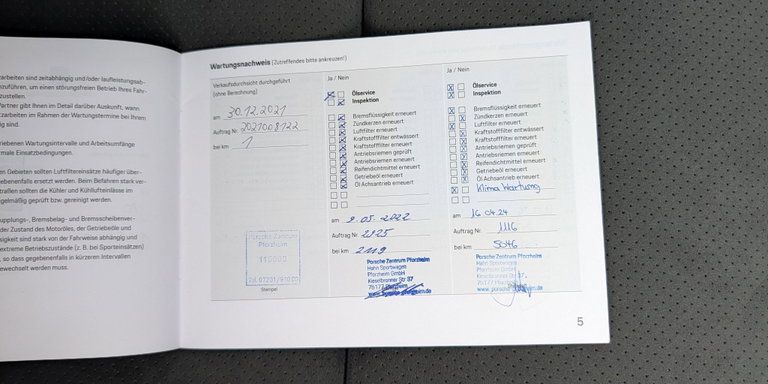 arbeiten sind zeitabhängig und/oder laufleistungsab-
nzuführen, um einen störungsfreien Betrieb Ihres Fahr-
zustellen.
Partner gibt Ihnen im Detail darüber Auskunft, wann
arbeiten im Rahmen der Wartungstermine bei Ihrem
ig sind.
riebenen Wartungsintervalle und Arbeitsumfänge
rmale Einsatzbedingungen.
en Gebieten sollten Luftfiltereinsätze häufiger über-
gebenenfalls ersetzt werden. Beim Befahren stark ver-
traßen sollten die Kühler und Kühllufteinlässe im
gelmäßig geprüft bzw. gereinigt werden.
upplungs-, Bremsbelag- und Bremsscheibenver-
der Zustand des Motoröles, der Getriebeöle und
sigkeit sind stark von der Fahrweise abhängig und
extreme Betriebszustände (z. B. bei Sporteinsätzen)
, so dass gegebenenfalls in kürzeren Intervallen
ewechselt werden muss.
Wartungsnachweis (Zutreffendes bitte ankreuzen!)
Verkaufsdurchsicht durchgeführt
(ohne Berechnung)
am 30.12.2021
Auftrag Nr. 2021008122
bei km 1
Porsche Zentrum
Pforzheim
Stempel
Ja / Nein
Ölservice
Inspektion
Bremsflüssigkeit erneuert
Zündkerzen erneuert
Luftfilter erneuert
Kraftstofffilter entwässert
Kraftstofffilter erneuert
Antriebsriemen geprüft
Antriebsriemen erneuert
Reifendichtmittel erneuert
Getriebeöl erneuert
Öl Achsantrieb erneuert
am 9.05.2022
Auftrag Nr. 2925
bei km 2119
Porsche Zentrum Pforzheim
Hahn Sportwagen
Pforzheim GmbH
Kieselbronner Str 37
75177 Pforzheim
Ja / Nein
Ölservice
Inspektion
Bremsflüssigkeit erneuert
Zündkerzen erneuert
Luftfilter erneuert
Kraftstofffilter entwässert
Kraftstofffilter erneuert
Antriebsriemen geprüft
Antriebsriemen erneuert
Reifendichtmittel erneuert
Getriebeöl erneuert
Öl Achsantrieb erneuert
Klima Wartung
am 16.04.24
Auftrag Nr. 1116
bei km 5046
Porsche Zentrum Pforzheim
Hahn Sportwagen
Pforzheim GmbH
Kieselbronner Str. 37
75177 Pforzheim
5